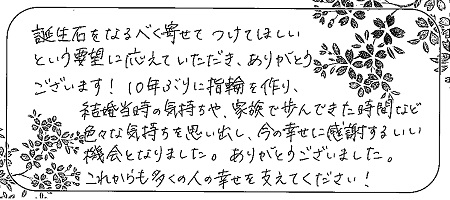 誕生石をなるべく寄せてつけてほしい
という要望に応えていただき、ありがとう
ございます！10年ぶりに指輪を作り、
結婚当時の気持ちや、家族で歩んできた時間など
色々な気持ちを思い出し、今の幸せに感謝するいい
機会となりました。ありがとうございました。
これからも多くの人の幸せを支えてください！